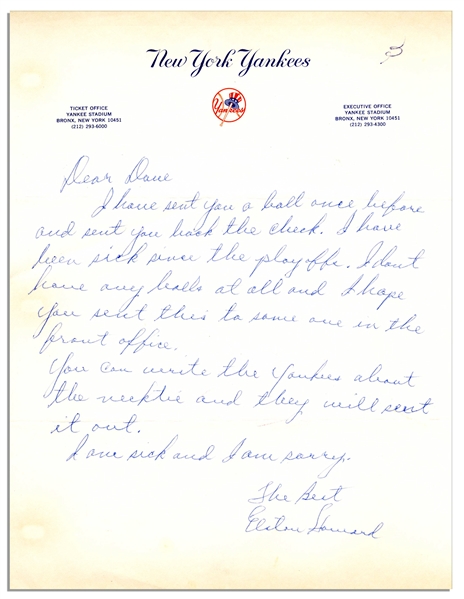 New York Yankees
Yankees
TICKET OFFICE
YANKEE STADIUM
BRONX, NEW YORK 10451
(212) 293-6000
EXECUTIVE OFFICE
YANKEE STADIUM
BRONX, NEW YORK 10451
(212) 293-4300
Dear Dave
I have sent you a ball once before
and sent you back the check. I have
been sick since the playoffs. I don't
have any balls at all and I hope
you sent this to some one in the
front office.
You can write the Yankies about
the necktie and they will sent
it out.
I am sick and I am sorry.
The Best
Elston Howard